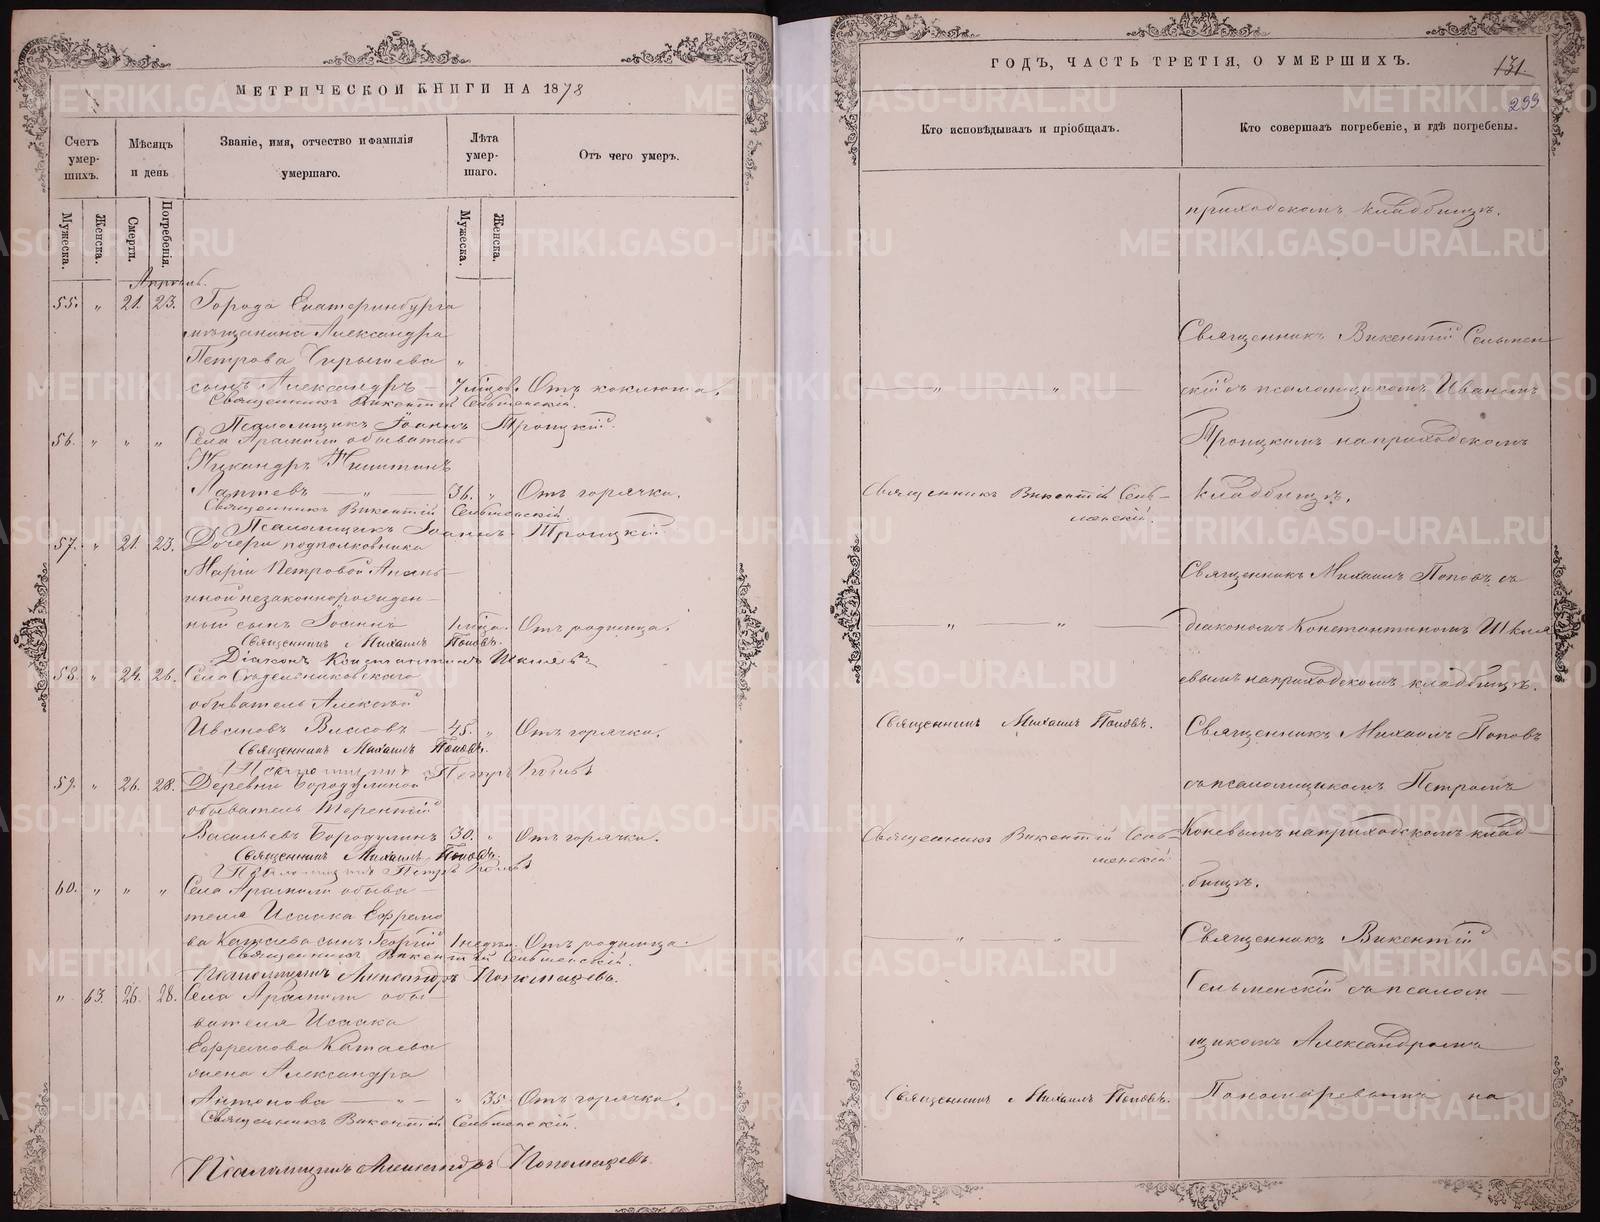 МЕТРИЧЕСКОЙ КНИГИ НА 1878
Счетъ умер-шихъ.
Мѣсяцъ и день
Званіе, имя, отчество и фамилія умершаго.
Лѣта умер-шаго.
Отъ чего умеръ.
Мужеска.
Женска.
Смерти.
Погребенія.
Мужеска.
Женска.
Апрѣль.
55. " 21. 23. Города Екатеринбурга
мѣщанина Александра
Петрова
сынъ Александръ — 7 мѣсяцов. Отъ коклюша.
Священникъ Викентій Сельменскій.
Псаломщикъ Іоаннъ Троицкій.
56. " " " Села Арамили обыватель
Никандръ
Лаптевъ — " — 36. " Отъ горячки.
Священникъ Викентій Сельменскій.
Псаломщикъ Іоаннъ Троицкій
57. " 21. 23. Дочери подполковника
Маріи Петровой Анань-
иной незаконнорожден-
ный сынъ Іоаннъ 1 мѣсца. Отъ родимца.
Священникъ Михаилъ Поповъ.
Діаконъ Константинъ
58. " 24. 26. Села
обыватель Алексѣй
Ивановъ Власовъ — 45. " Отъ горячки.
Священникъ Михаилъ Поповъ.
Псаломщикъ Петръ
59. " 26. 28. Деревни Бородулиной
обыватель Терентій
Васильевъ Бородулинъ 30. " Отъ горячки.
Священникъ Михаилъ Поповъ.
Псаломщикъ Петръ
60. " " " Села Арамили обыва-
теля Исаака Ефремо
ва Катаева сынъ Георгій 1 недѣли. Отъ родимца.
Священникъ Викентій Сельменскій.
Псаломщикъ Александръ Пономаревъ.
" 63. 26. 28. Села Арамили обы-
вателя Исаака
Ефремова Катаева
жена Александра
Антонова — " — " 35. Отъ горячки.
Священникъ Викентій Сельменскій.
Псаломщикъ Александръ Пономаревъ.
ГОДЪ, ЧАСТЬ ТРЕТІЯ, О УМЕРШИХЪ.
131
299
Кто исповѣдывалъ и пріобщалъ.
Кто совершалъ погребеніе, и гдѣ погребены.
приходскомъ кладбищѣ.
Священникъ Викентій Сельмен
скій съ псаломщикомъ Иваномъ
Троицкомъ на приходскомъ
Священникъ Викентій Сель-
менскій.
кладбищѣ.
Священникъ Михаилъ Поповъ съ
діакономъ Константиномъ
евымъ на приходскомъ кладбищѣ.
Священникъ Михаилъ Поповъ.
Священникъ Михаилъ Поповъ
съ псаломщикомъ Петромъ
Священникъ Викентій Сель-
менскій
Коневымъ на приходскомъ клад-
бищѣ.
Священникъ Викентій
Сельменскій съ псалом-
щикомъ Александромъ
Священникъ Михаилъ Поповъ.
Пономаревымъ на
METRIKI.GASO-URAL.RU